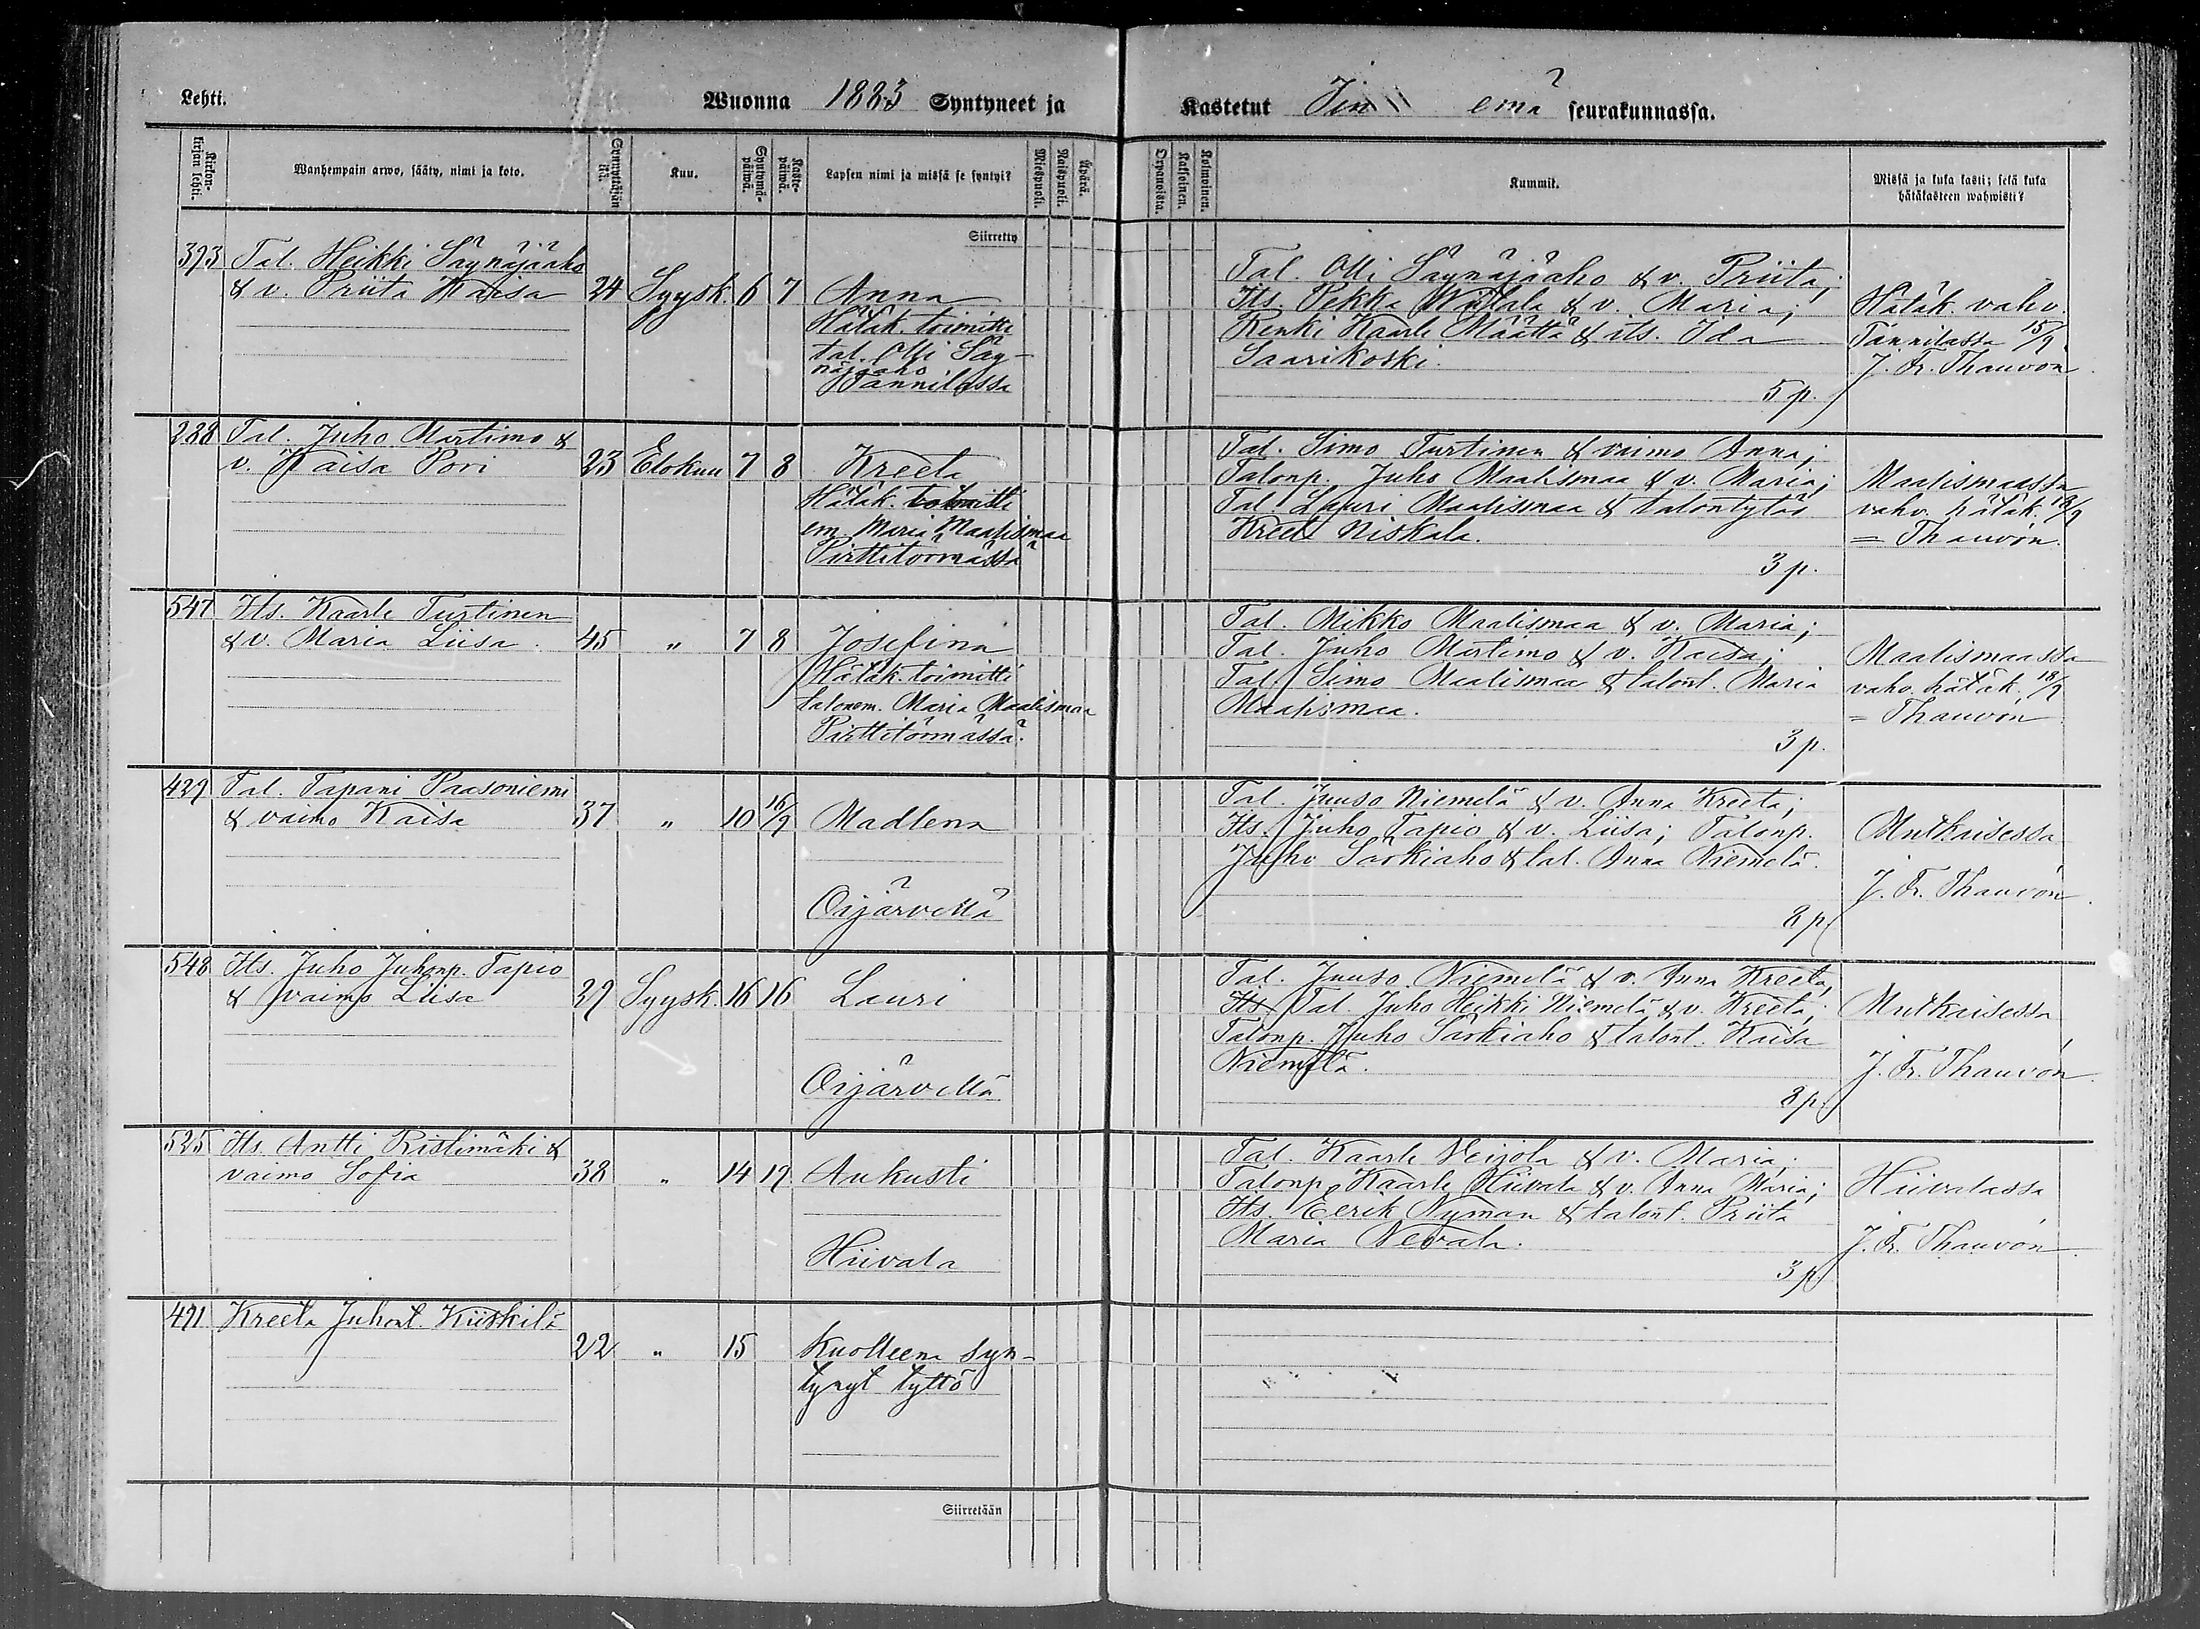 Lehti.
Wuonna 1883 Syntyneet ja
Kastetut Iin emä seurakunnassa.
Kirkon-kirjan lehti.
Wanhempain arwo, sääty, nimi ja koto.
Synnyttäjän ikä.
Kuu.
Syntymä-päiwä.
Kaste-päiwä.
Lapsen nimi ja missä se syntyi?
Miespuoli.
Naispuoli.
Äpärä.
Orpanoista.
Kaksoinen.
Kolmoinen.
Kummit.
Missä ja kuka kasti; sekä kuka
hätäkasteen wahwisti?
Siirretty
393 Tal. Heikki Säynäjäaho
& v. Priita Kaisa 24 Syysk. 6 7 Anna
Hätäk. toimitti
tal. Olli Säy-
näjäaho
Tannilassa
Tal. Olli Säynäjäaho & v. Priita;
Its. Pekka Wattala & v. Maria;
Renki Kaarle Määttä & its. Ida
Saarikoski.
5 p.
Hätäk. vahv.
Tannilassa 15/9
J. Fr. Thauvón
288 Tal. Juho Martimo &
v. Kaisa Pori 23 Elokuu 7 8 Kreeta
Hätäk. toimitti
em. Maria Maalismaa
Pirttitörmässä
Tal. Simo Turtinen & vaimo Anna;
Talonp. Juho Maalismaa & v. Maria;
Tal. Lauri Maalismaa & talontytär
Kreeta Niskala.
3 p.
Maalismaassa
vahv. hätäk. 18/9
= Thauvón.
547 Its. Kaarle Turtinen
& v. Maria Liisa. 45 " 7 8 Josefina
Hätäk. toimitti
talonem. Maria Maalismaa
Pirttitörmässä.
Tal. Mikko Maalismaa & v. Maria;
Tal. Juho Martimo & v. Kaisa;
Tal. Simo Maalismaa & talont. Maria
Maalismaa.
3 p.
Maalismaassa
vahv. hätäk. 18/9
= Thauvón
429 Tal. Tapani Paasoniemi
& vaimo Kaisa 37 " 10 16/9 Madlena
Oijärvellä
Tal. Juuso Niemelä & v. Anna Kreeta;
Its. Juho Tapio & v. Liisa; Talonp.
Juho Särkiaho & tal. Anna Niemelä.
8 p
Mutkaisessa
J. Fr. Thauvón.
548 Its. Juho Juhonp. Tapio
& vaimo Liisa 29 Syysk. 16 16 Lauri
Oijärvellä
Tal. Juuso Niemelä & v. Anna Kreeta,
Its Tal. Juho Heikki Niemelä & v. Kreeta;
Talonp. Juho Särkiaho & talont. Kaisa
Niemelä.
8 p
Mutkaisessa
J. Fr. Thauvón.
525 Its. Antti Ristimäki &
vaimo Sofia 38 " 14 19 Aukusti
Hiivala
Tal. Kaarle Veijola & v. Maria;
Talonp. Kaarle Hiivala & v. Anna Maria;
Its. Eerik Nyman & talont. Priita
Maria Nevala.
3 p
Hiivalassa
J. Fr. Thauvón.
491 Kreeta Juhont. Kiiskilä
22 " 15 Kuolleena syn-
tynyt tyttö
Siirretään